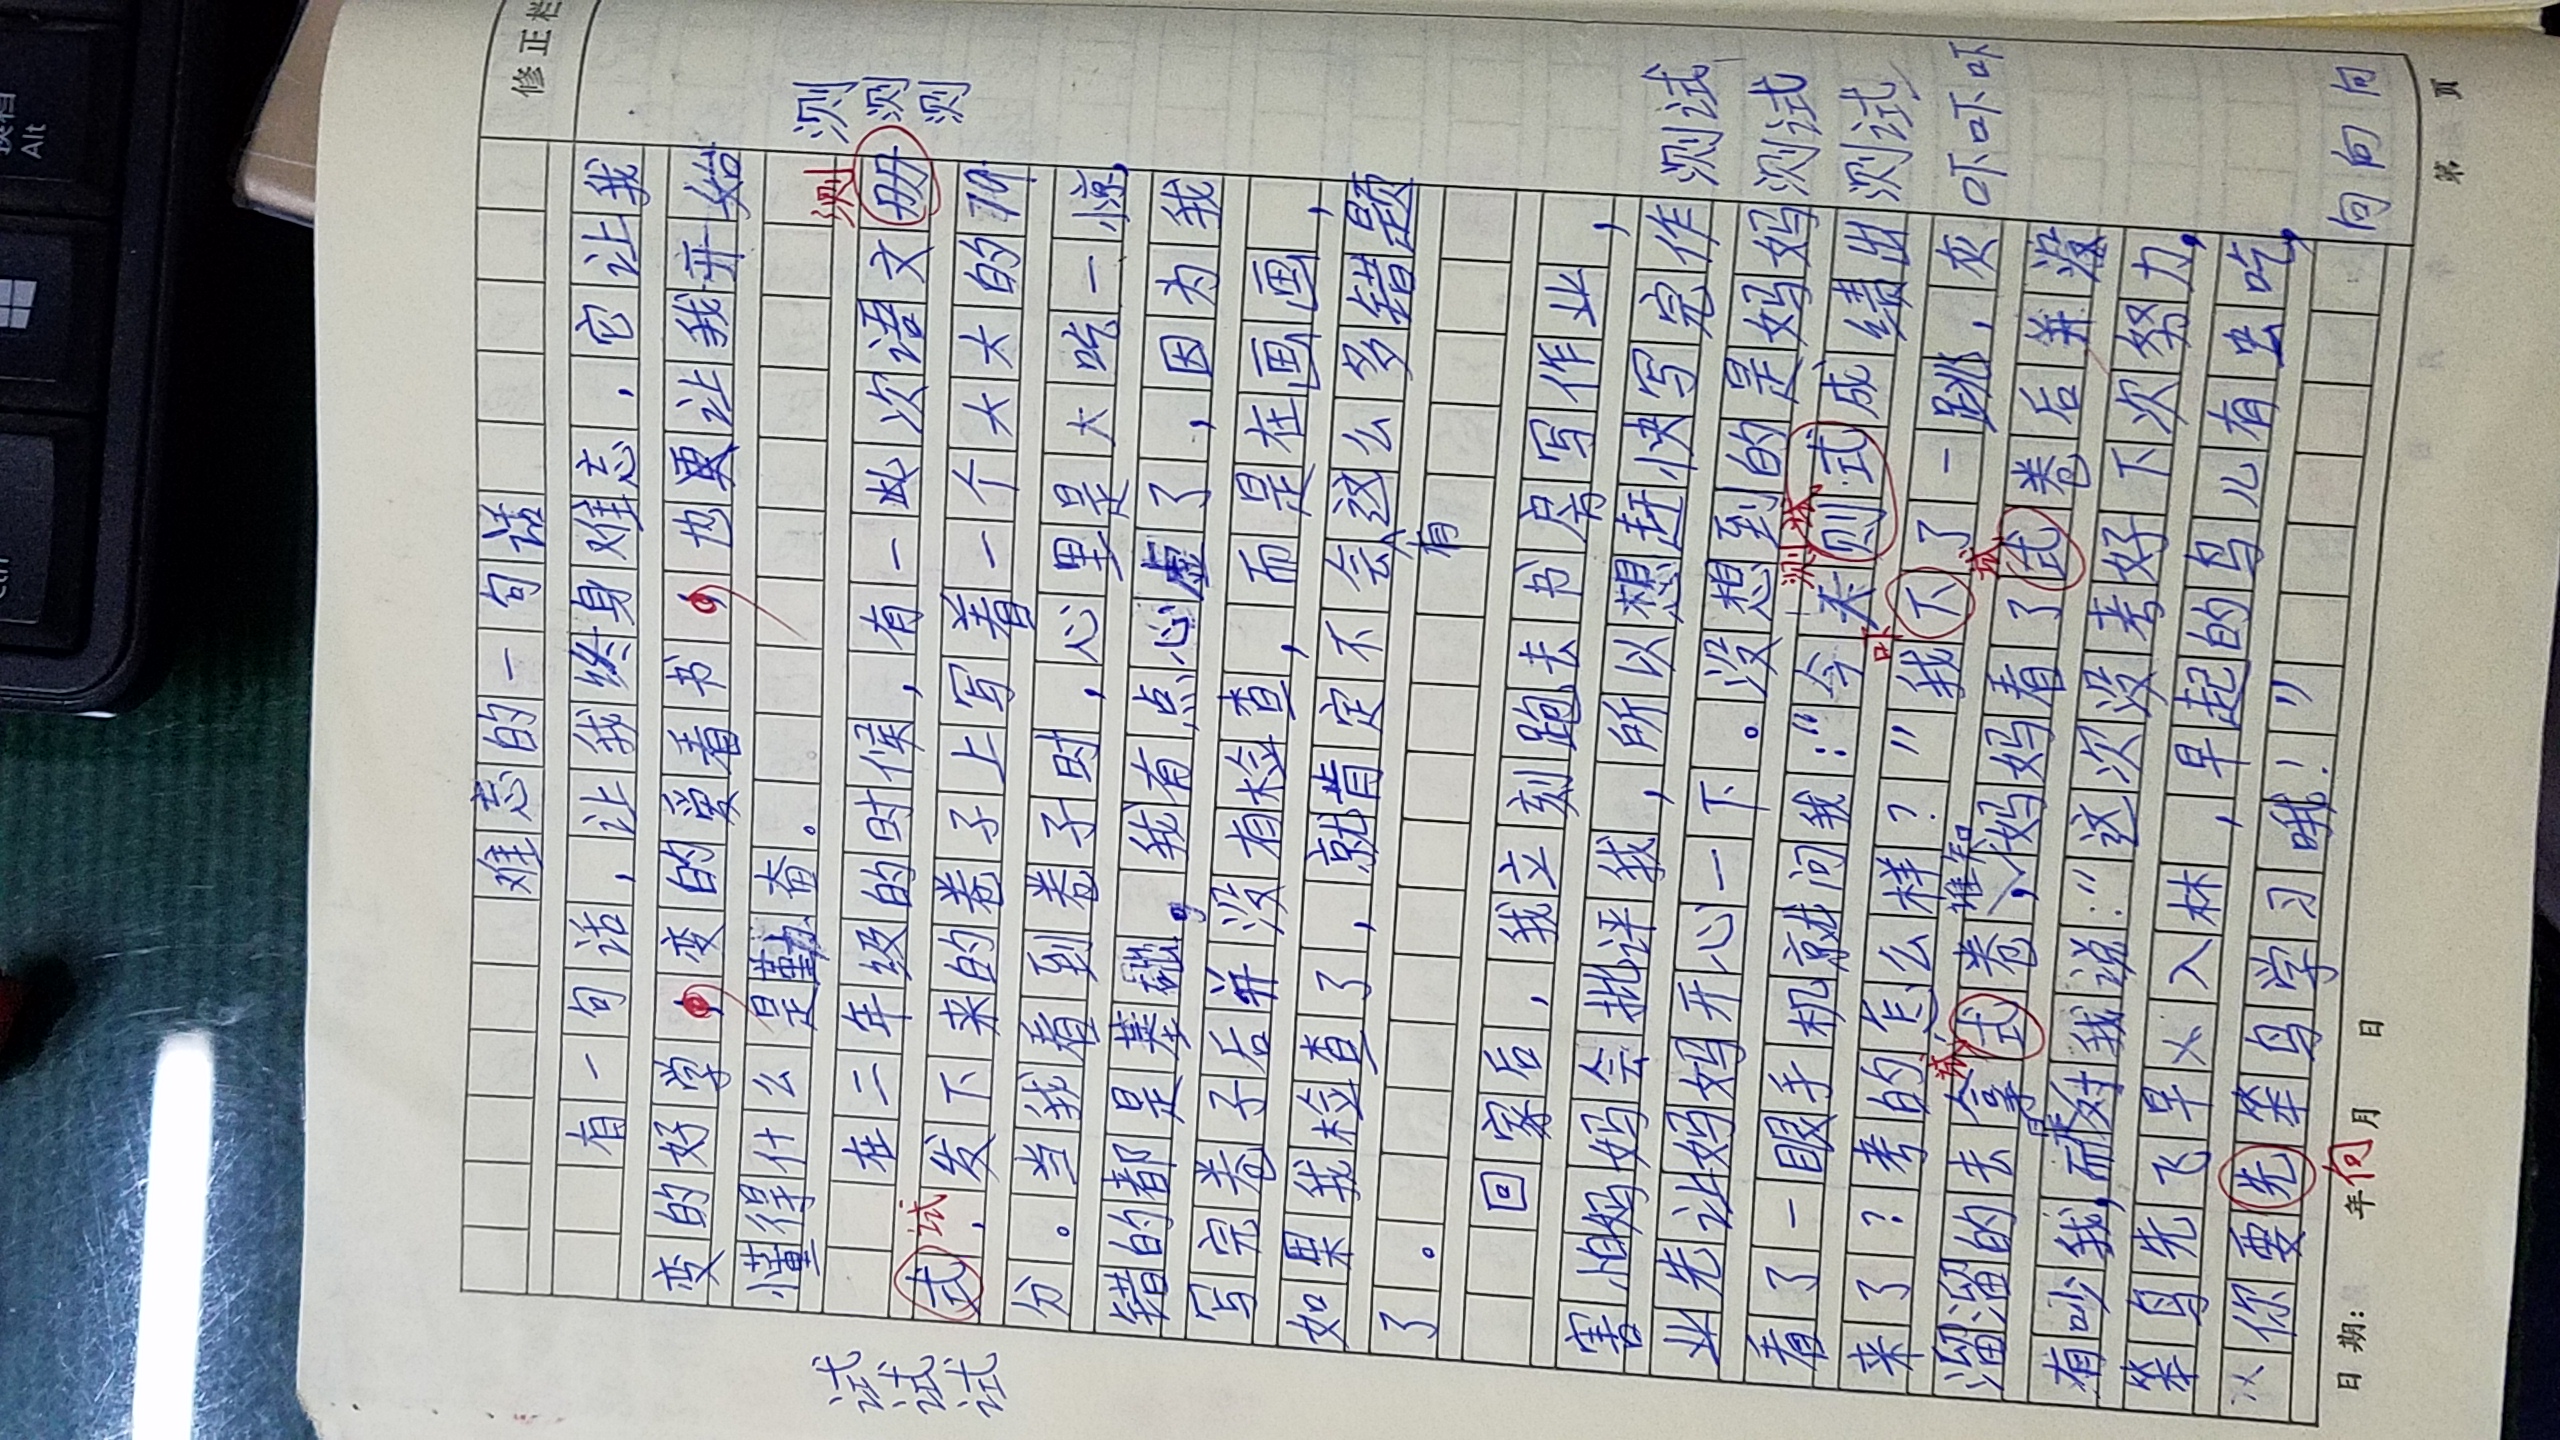 修正栏
难忘的一句话
有一句话，让我终身难忘，它让我
变的好学，变的爱看书，也更让我开始
懂得什么是勤奋。
测
测 测 测
在二年级的时候，有一次语文册
试
式，发下来的卷子上写着一个大大的79
试 试 试
分。当我看到卷子时，心里是大吃一惊，
错的都是基础，我有点心虚了，因为我
写完卷子后并没有检查，而是在画画，
如果我检查了，就肯定不会有这么多错题
了。
回家后，我立刻跑去书房写作业，
害怕妈妈会批评我，所以想赶快写完作
业先让妈妈开心一下。没想到的是妈妈
测试 测试 测试
测试
看了一眼手机就问我：“今天则式成绩出
吓
来了？考的怎么样？”我下了一跳，灰
吓吓吓
试 试
溜溜的去拿式卷，谁知妈妈看了式卷后并没
有吵我，而是对我说：“这次没考好下次努力，
笨鸟先飞早入林，早起的鸟儿有虫吃，
你要先笨鸟学习哦！”
向
向向向
日期： 年 月 日
第 页
Alt